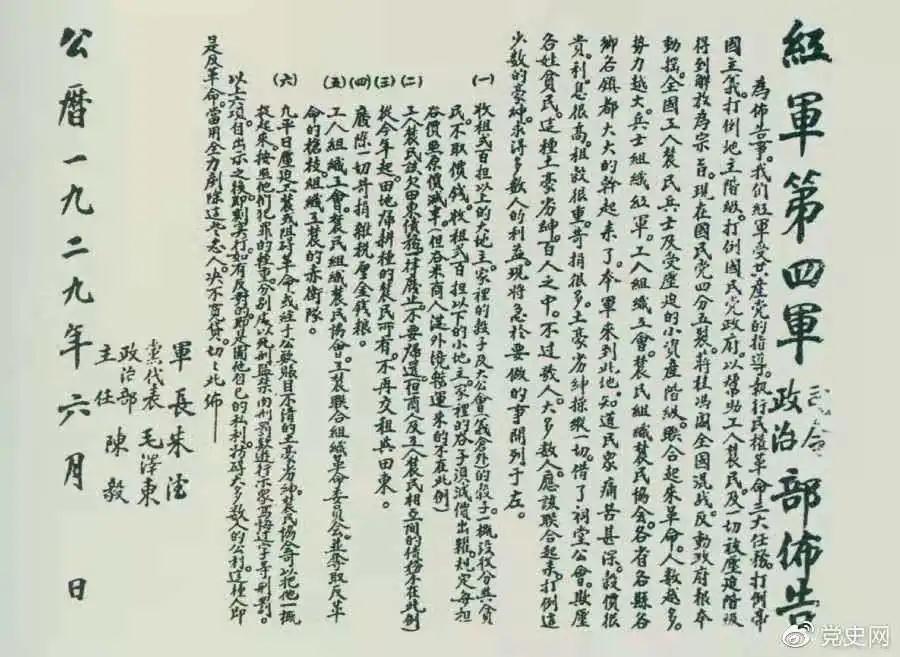 紅軍第四軍 司令 政治 部佈告
為佈告事。我們紅軍受共產党的指導。執行民權革命三大任務。打倒帝
國主義。打倒地主階級。打倒國民党政府。以幫助工人農民及一切被壓迫階級
得到解放為宗旨。現在國民党四分五裂。蔣桂馮閻全國混战。反動政府根本
動搖。全國工人農民兵士及受壓迫的小資產階級。聯合起來革命。人數越多。
势力越大。兵士組織紅軍。工人組織工會。農民組織農民協會。各省各縣各
鄉各鎮都大大的幹起來了。本軍來到此地。知道民衆痛苦甚深。穀價很
貴。利息很高。租穀很重。苛捐很多。土豪劣紳操縱一切。借了祠堂公會。欺壓
各姓貧民。這種土豪劣紳。百人之中。不过数人。大多数人。應該联合起來。打倒這
少数的豪紳。求得多数人的利益。現將急於要做的事開列于左。
(一) 收租弍百担以上的大地主。家裡的穀子及大公會(義倉外)的穀子一概沒收分與貧
民。不取價錢。收租弍百担以下的小地主。家裡的谷子。須減價出糶。規定每担
谷價照原價減半。(但谷米商人從外境辦運來的不在此例)
(二) 工人農民該欠田東債務。一律廢止。不要歸還。(但商人及工人農民相互間的債務不在此例)
(三) 從今年起。田地歸耕種的農民所有。不再交租與田東。
(四) 廢除一切苛捐雜稅厘金錢粮。
(五) 工人組織工會。農民組織農民協會。工農联合組織革命委員会。並奪取反革
命的槍枝。組織工農的赤衛隊。
(六) 凡平日壓迫工農或阻碍革命或經手公款賬目不清的土豪劣紳。農民協會可以把他一概
捉起來。按照他們犯罪的輕重。分別處以死刑監禁肉刑罰款遊行示衆寫悔过字等刑罰。
以上六項。自出示之後。即刻实行。如有反對的。即是圖他自己的私利。妨碍大多数人的公利。這種人即
是反革命。當用全力剷除這些惡人。决不寬貸。切切此佈
軍長 朱德
党代表 毛澤東
政治部主任 陳毅
公曆一九二九年六月 日
党史网